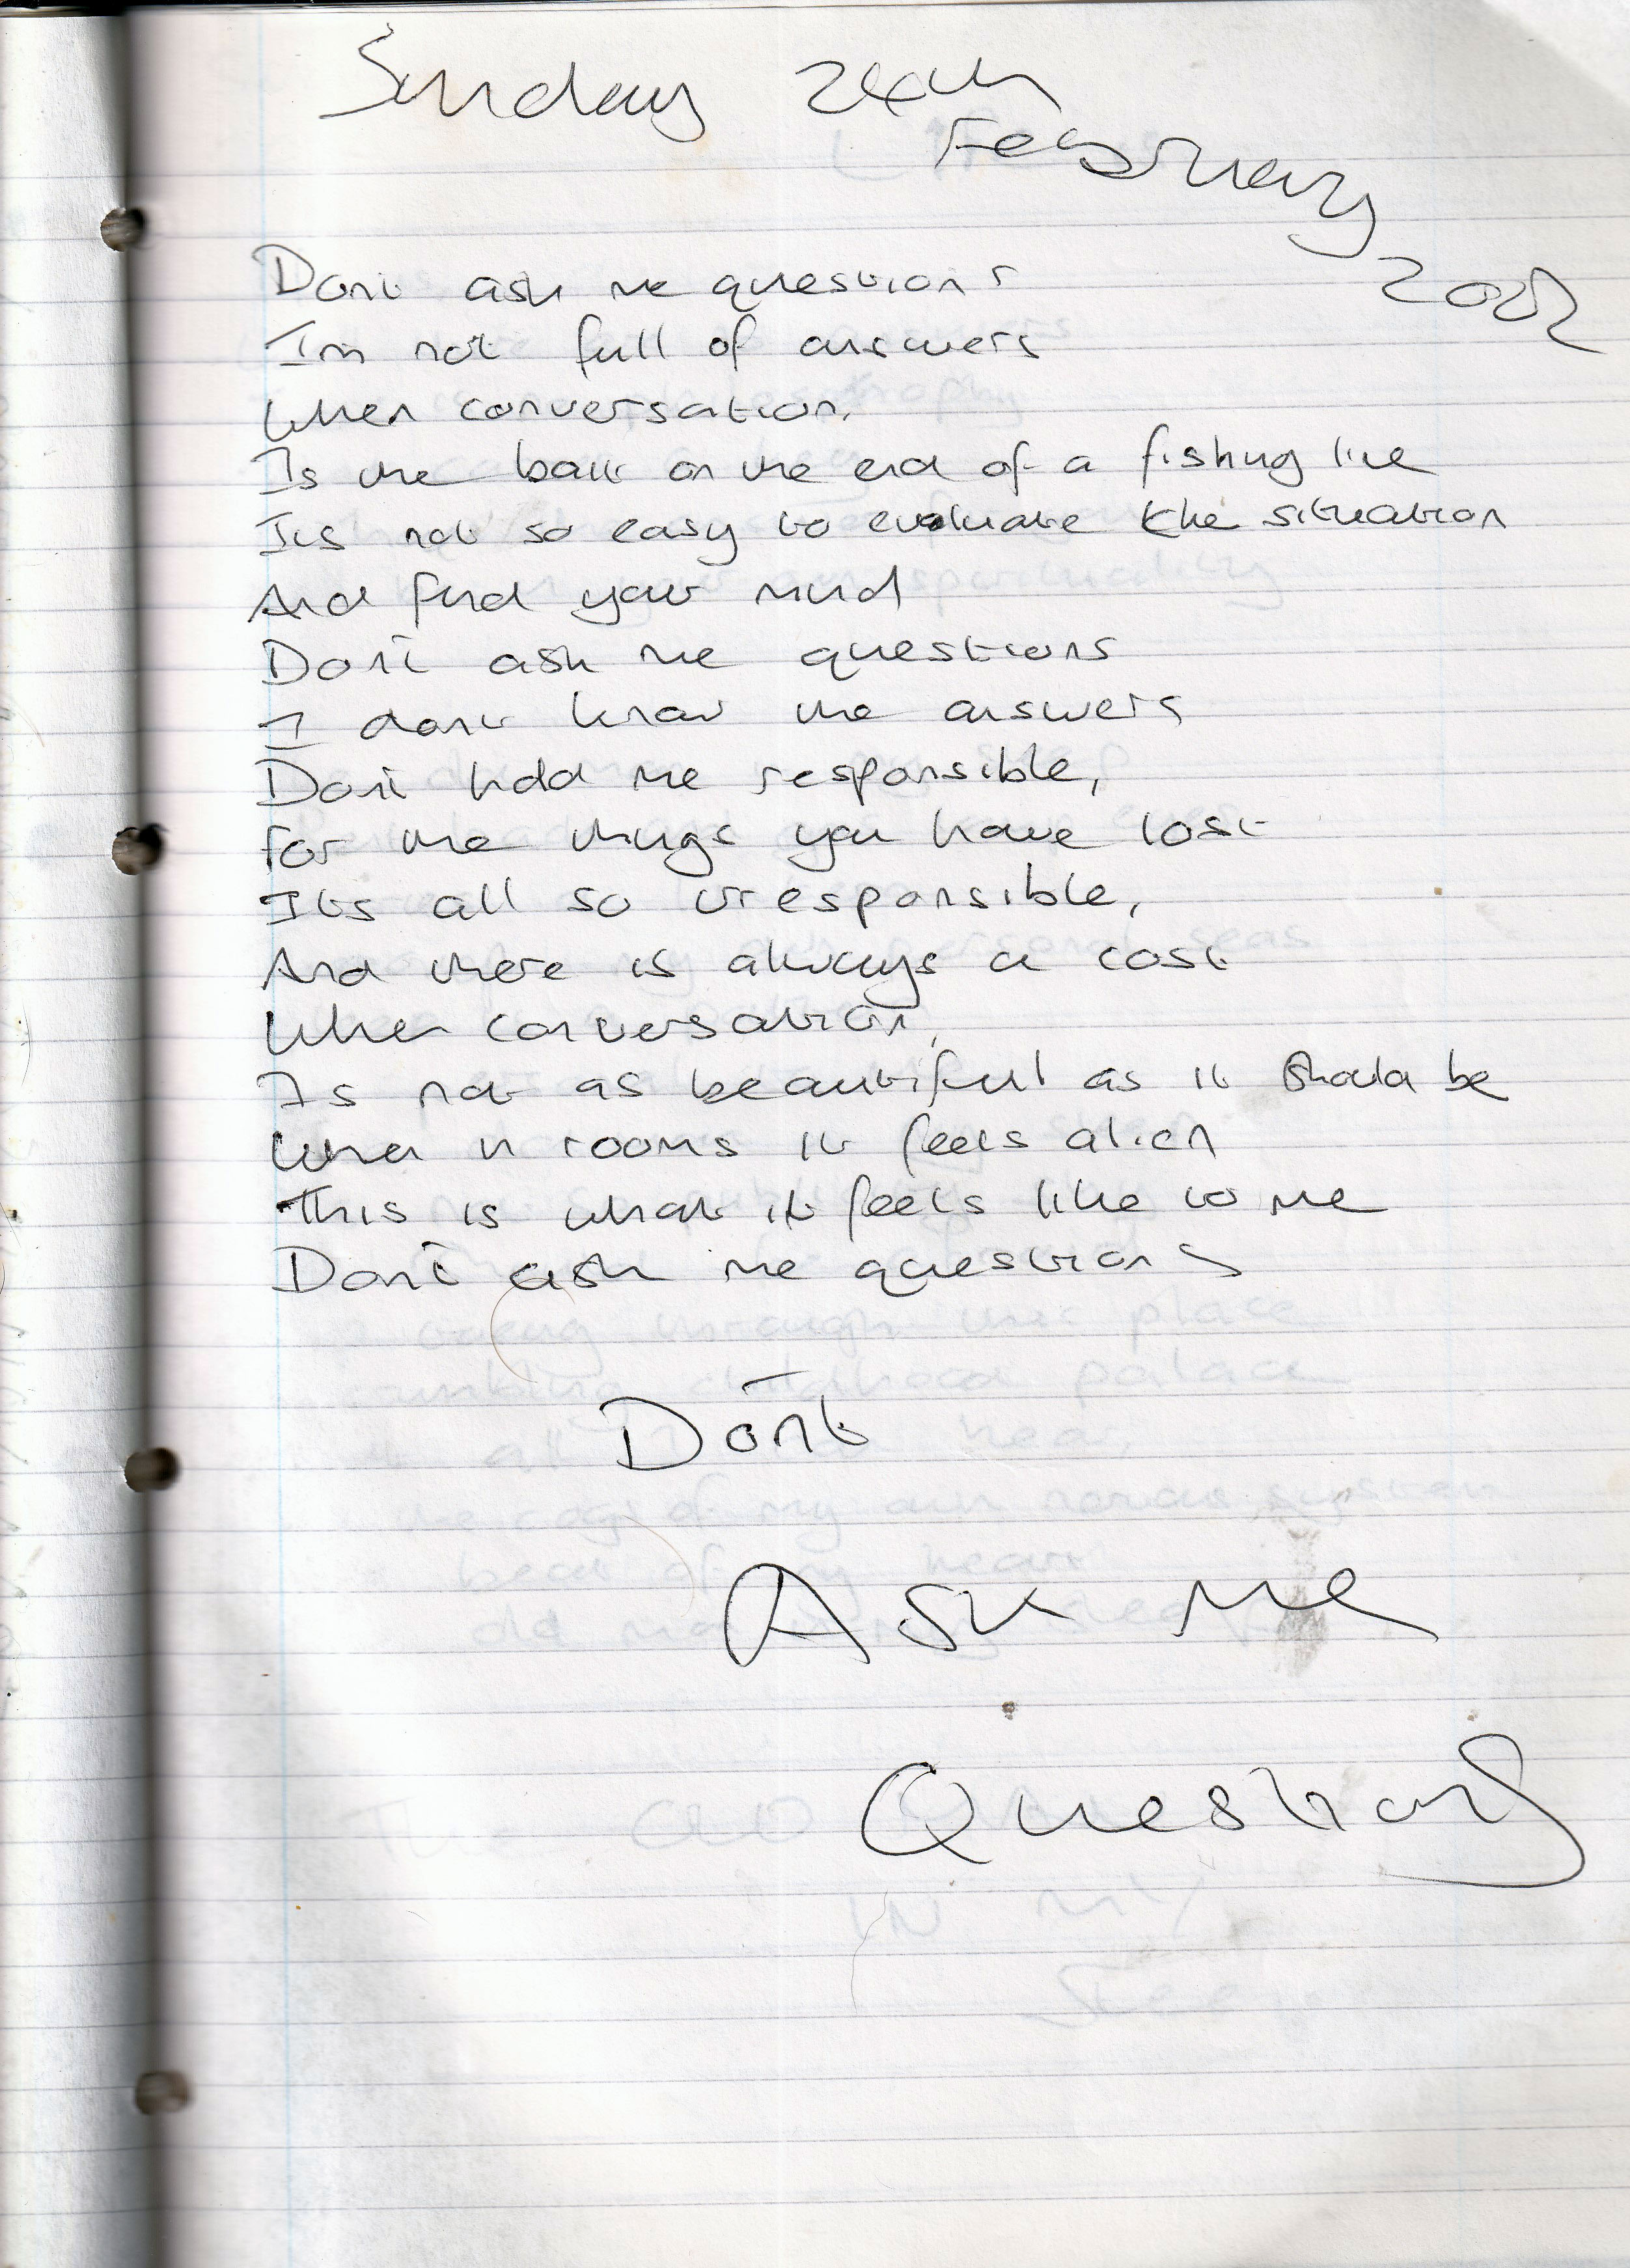 Sunday 24th
February
2002
Dont ask me questions
Im not full of answers
When conversation,
Is the bait on the end of a fishing line
Its not so easy to evaluate the situation
And find your mind
Dont ask me questions
I dont know the answers
Dont hold me responsible,
For the things you have lost
Its all so irresponsible,
And there is always a cost
When conversation,
Is not as beautiful as it should be
When in rooms it feels alien
This is what it feels like to me
Dont ask me questions
Dont
Ask me
Questions